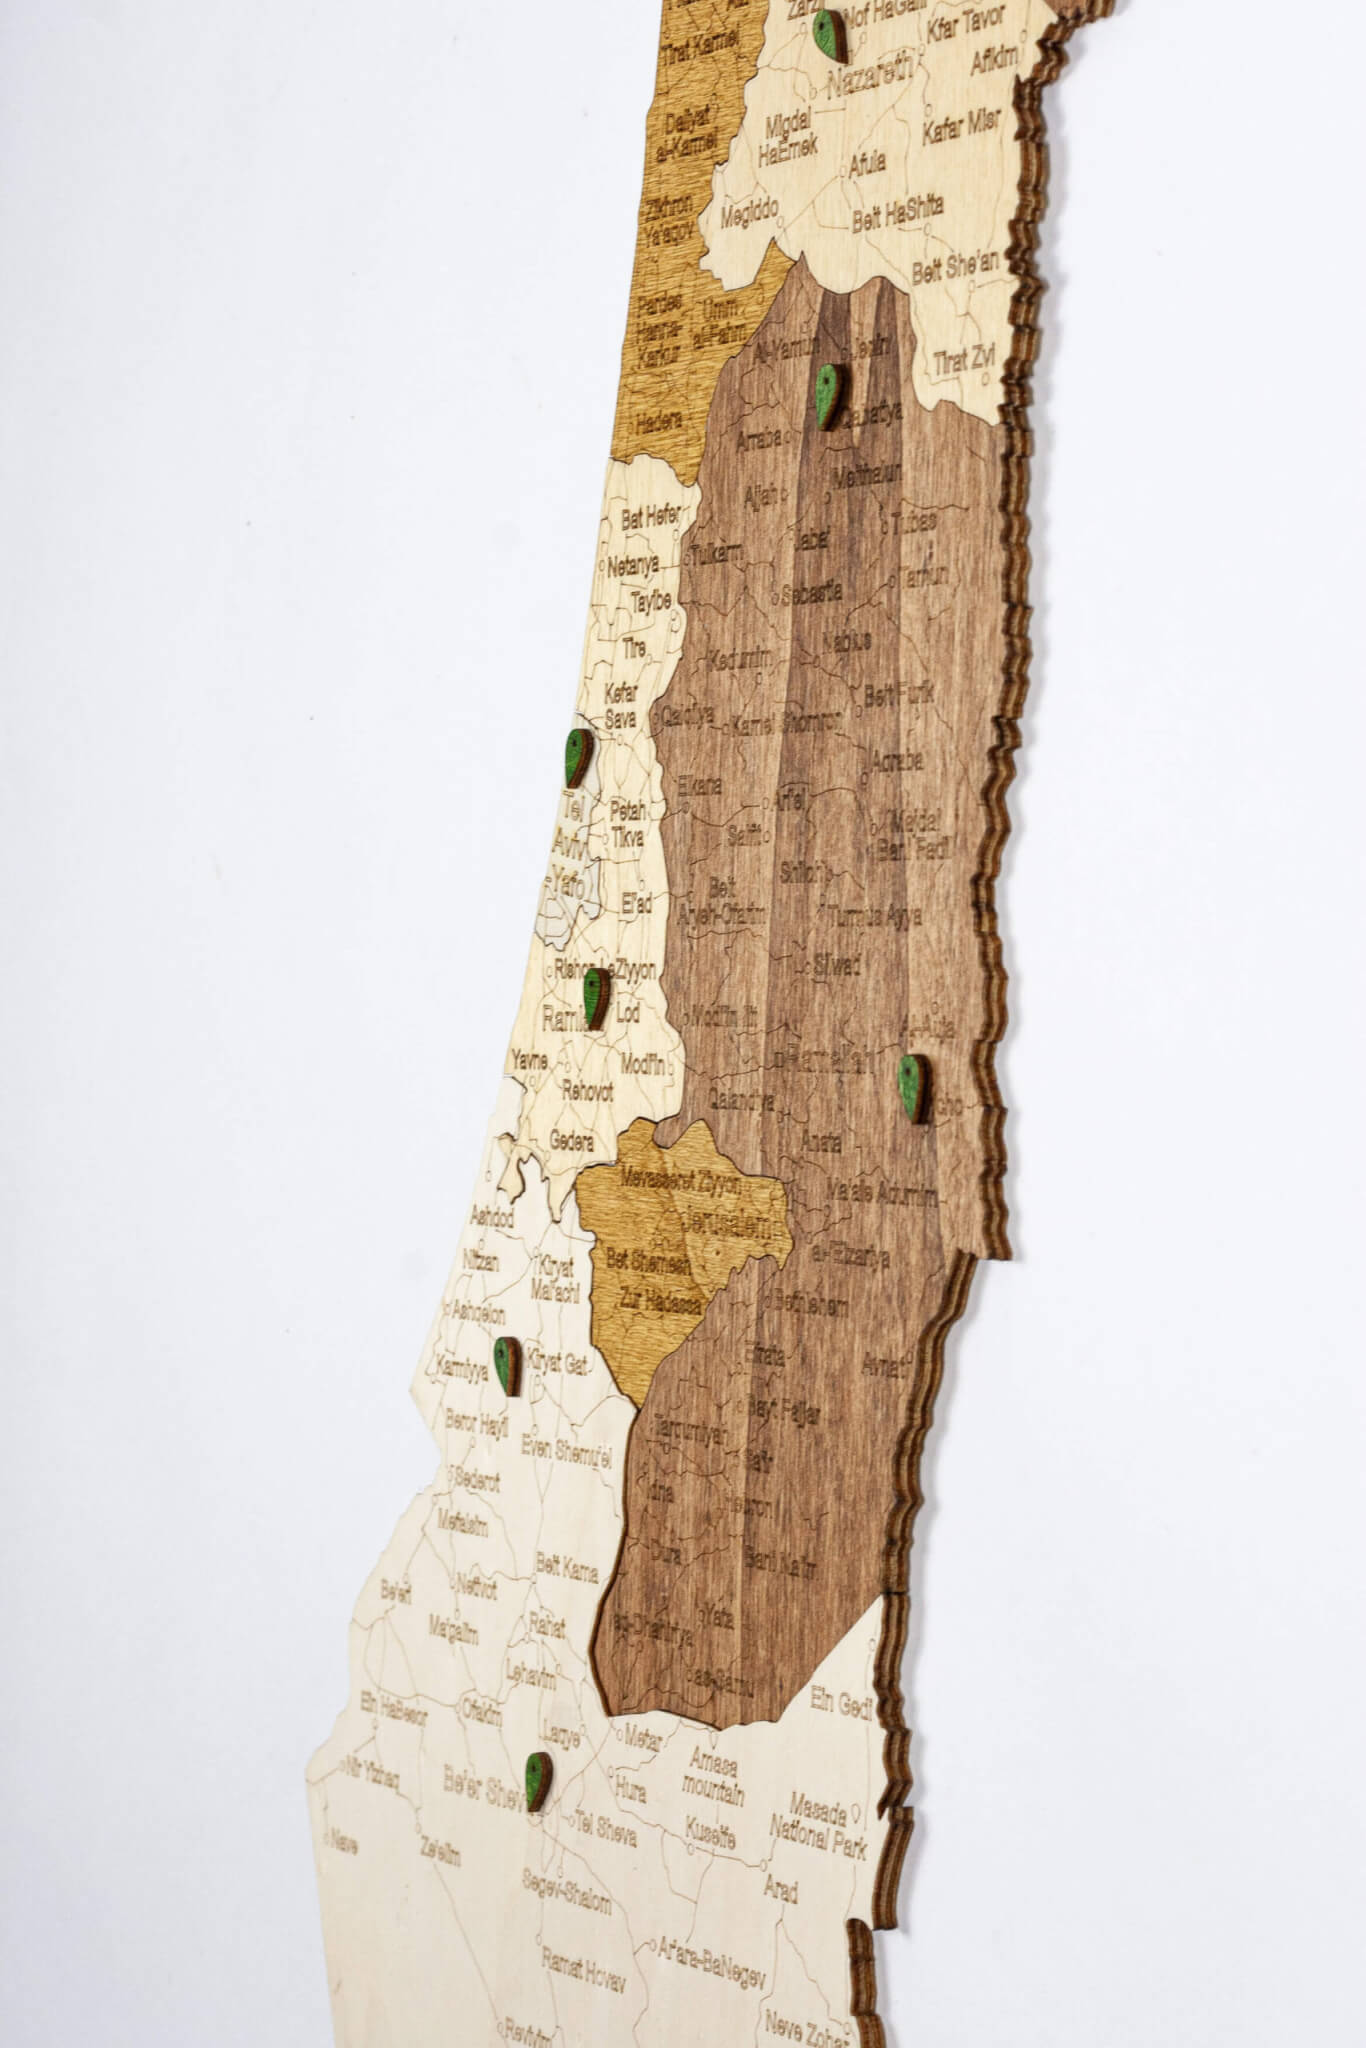 Tirat Karmel
Nof HaGalil
Kfar Tavor
Afikim
Nazareth
Daliyat
al-Karmel
Migdal
HaEmek
Kafar Misr
Afula
Zikhron
Ya'aqov
Megiddo
Beit HaShita
Beit She'an
Pardes
Hanna-
Karkur
Umm
al-Fahm
Al-Yamun
Jenin
Tirat Zvi
Hadera
Arraba
Qabatiya
Meithalun
Ajjah
Bat Hefer
Tubas
Jaba'
Netanya
Tulkarm
Tamun
Tayibe
Sebastia
Tire
Kedumim
Nablus
Kefar
Sava
Qalqilya
Karnei Shomron
Beit Furik
Aqraba
Elkana
Ari'el
Tel
Aviv
-Yafo
Petah
Tikva
Salfit
Majdal
Bani Fadil
Shiloh
El'ad
Beit
Aryeh-Ofarim
Turmus Ayya
Silwad
Rishon LeZiyyon
Lod
Modi'in Ilit
Al-Auja
Ramallah
Yavne
Modi'in
Rehovot
Qalandiya
Gedera
Anata
Mevasseret Ziyyon
Ma'ale Adumim
Jerusalem
Ashdod
Nitzan
Kiryat
Mal'achi
Bet Shemesh
al-'Eizariya
Zur Hadassa
Bethlehem
Ashqelon
Karmiyya
Kiryat Gat
Efrata
Avnat
Bayt Fajjar
Beror Hayil
Even Shemu'el
Tarqumiyah
Sa'ir
Sederot
Idna
Hebron
Mefalsim
Dura
Bani Na'im
Beit Kama
Netivot
Be'eri
Ma'galim
Rahat
Yata
ad-Dhahiriya
Lehavim
as-Samu
Ein Gedi
Ein HaBesor
Ofakim
Laqye
Metar
Amasa
mountain
Nir Yizhaq
Be'er Shev
Hura
Masada
National Park
Tel Sheva
Kuseife
Nave
Ze'elim
Arad
Segev-Shalom
Ar'ara-BaNegev
Ramat Hovav
Revivim
Neve Zohar